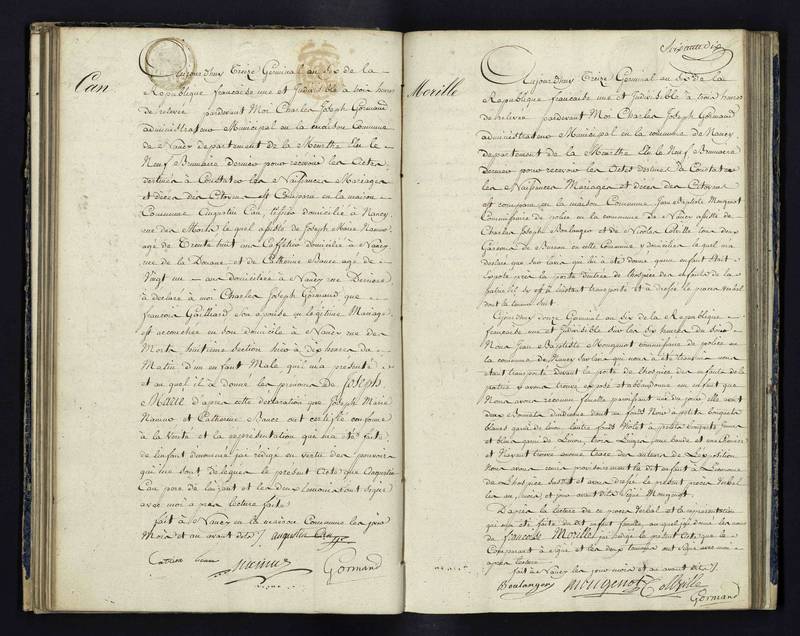 Can
Aujourdhuy Treize Germinal an Six de la
Republique française une et Indivisible à trois heures
de relevée pardevant Moi Charles Joseph Gormand
administrateur Municipal en la maison Commune
de Nancy departement de la Meurthe Elu le
Neuf Brumaire dernier pour recevoir les Actes
destinés à Constater les Naissances Mariages
et décès des Citoyens est Comparu en la maison
Commune Augustin Can, domicilié à Nancy
rue des Morts lequel assisté de Joseph Marie Namur
agé de Trente huit ans Caffetier domicilié à Nancy
rue de la Douane et de Catherine agée de
Vingt un ans domiciliée à Nancy
a déclaré à moi Charles Joseph Gormand que
françois Gaillard son épouse en légitime Mariage
est accouchée en son domicile à Nancy rue des
Morts huitième Section hier à dix heures du
Matin d'un enfant Male, qu'il m'a présenté
et auquel il a donné les prenoms De Joseph
Marie d'après cette déclaration que Joseph Marie
Namur et Catherine ont certifié conforme
à la Vérité et la représentation qui m'a été faite
de l'enfant dénommé j'ai rédigé en vertu des pouvoirs
qui me sont délégués le présent Acte que Augustin
Can père de l'enfant et les deux temoins ont signé
avec moi après lecture faite
fait à Nancy en la maison Commune les jour
Mois et an avant dits augustin Can
namur
Gormand
Soixante dix
Morille
Aujourdhuy Treize Germinal an Six de la
Republique française une et Indivisible à trois heures
de relevée pardevant Moi Charles Joseph Gormand
administrateur Municipal en la commune de Nancy
departement de la Meurthe Elu le Neuf Brumaire
dernier pour recevoir les Actes destinés à Constater
les Naissances Mariages et décès des Citoyens
est comparu en la maison Commune Jean Baptiste Mougenot
Commissaire de police en la commune de Nancy assisté de
Charles Joseph Boulanger et de Nicolas tous deux
Garçons de Bureau en cette Commune y domiciliés lequel m'a
déclaré que sur l'avis qui lui a été donné qu'un enfant était
exposé près la porte d'entrée de l'hospice des enfants de la
patrie il s'y est à l'instant transporté et a dressé le procès verbal
dont la teneur suit
Aujourdhuy douze Germinal an six de la Republique
française une et Indivisible sur les six heures du soir
Nous Jean Baptiste Mougenot commissaire de police en
la commune de Nancy sur l'avis qui nous a été transmis nous
étant transporté devant la porte de l'hospice des enfants de la
patrie y avons trouvé exposé et abandonné un enfant que
Nous avons reconnu femelle
et n'ayant trouvé aucune trace des auteurs de l'exposition
Nous avons remis provisoirement le dit enfant à l'économe
de l'hospice susdit et avons dressé le présent procès verbal
les an, mois et jour avant dits Signé Mougenot
D'après la lecture de ce procès verbal et la représentation
qui m'a été faite du dit enfant femelle, auquel j'ai donné les noms
de françoise Morille j'ai rédigé le présent Acte, que le
Comparant a signé et les deux temoins ont signé avec moi
après lecture
fait à Nancy les jour mois et an avant dits
Boulanger mougenot
Gormand